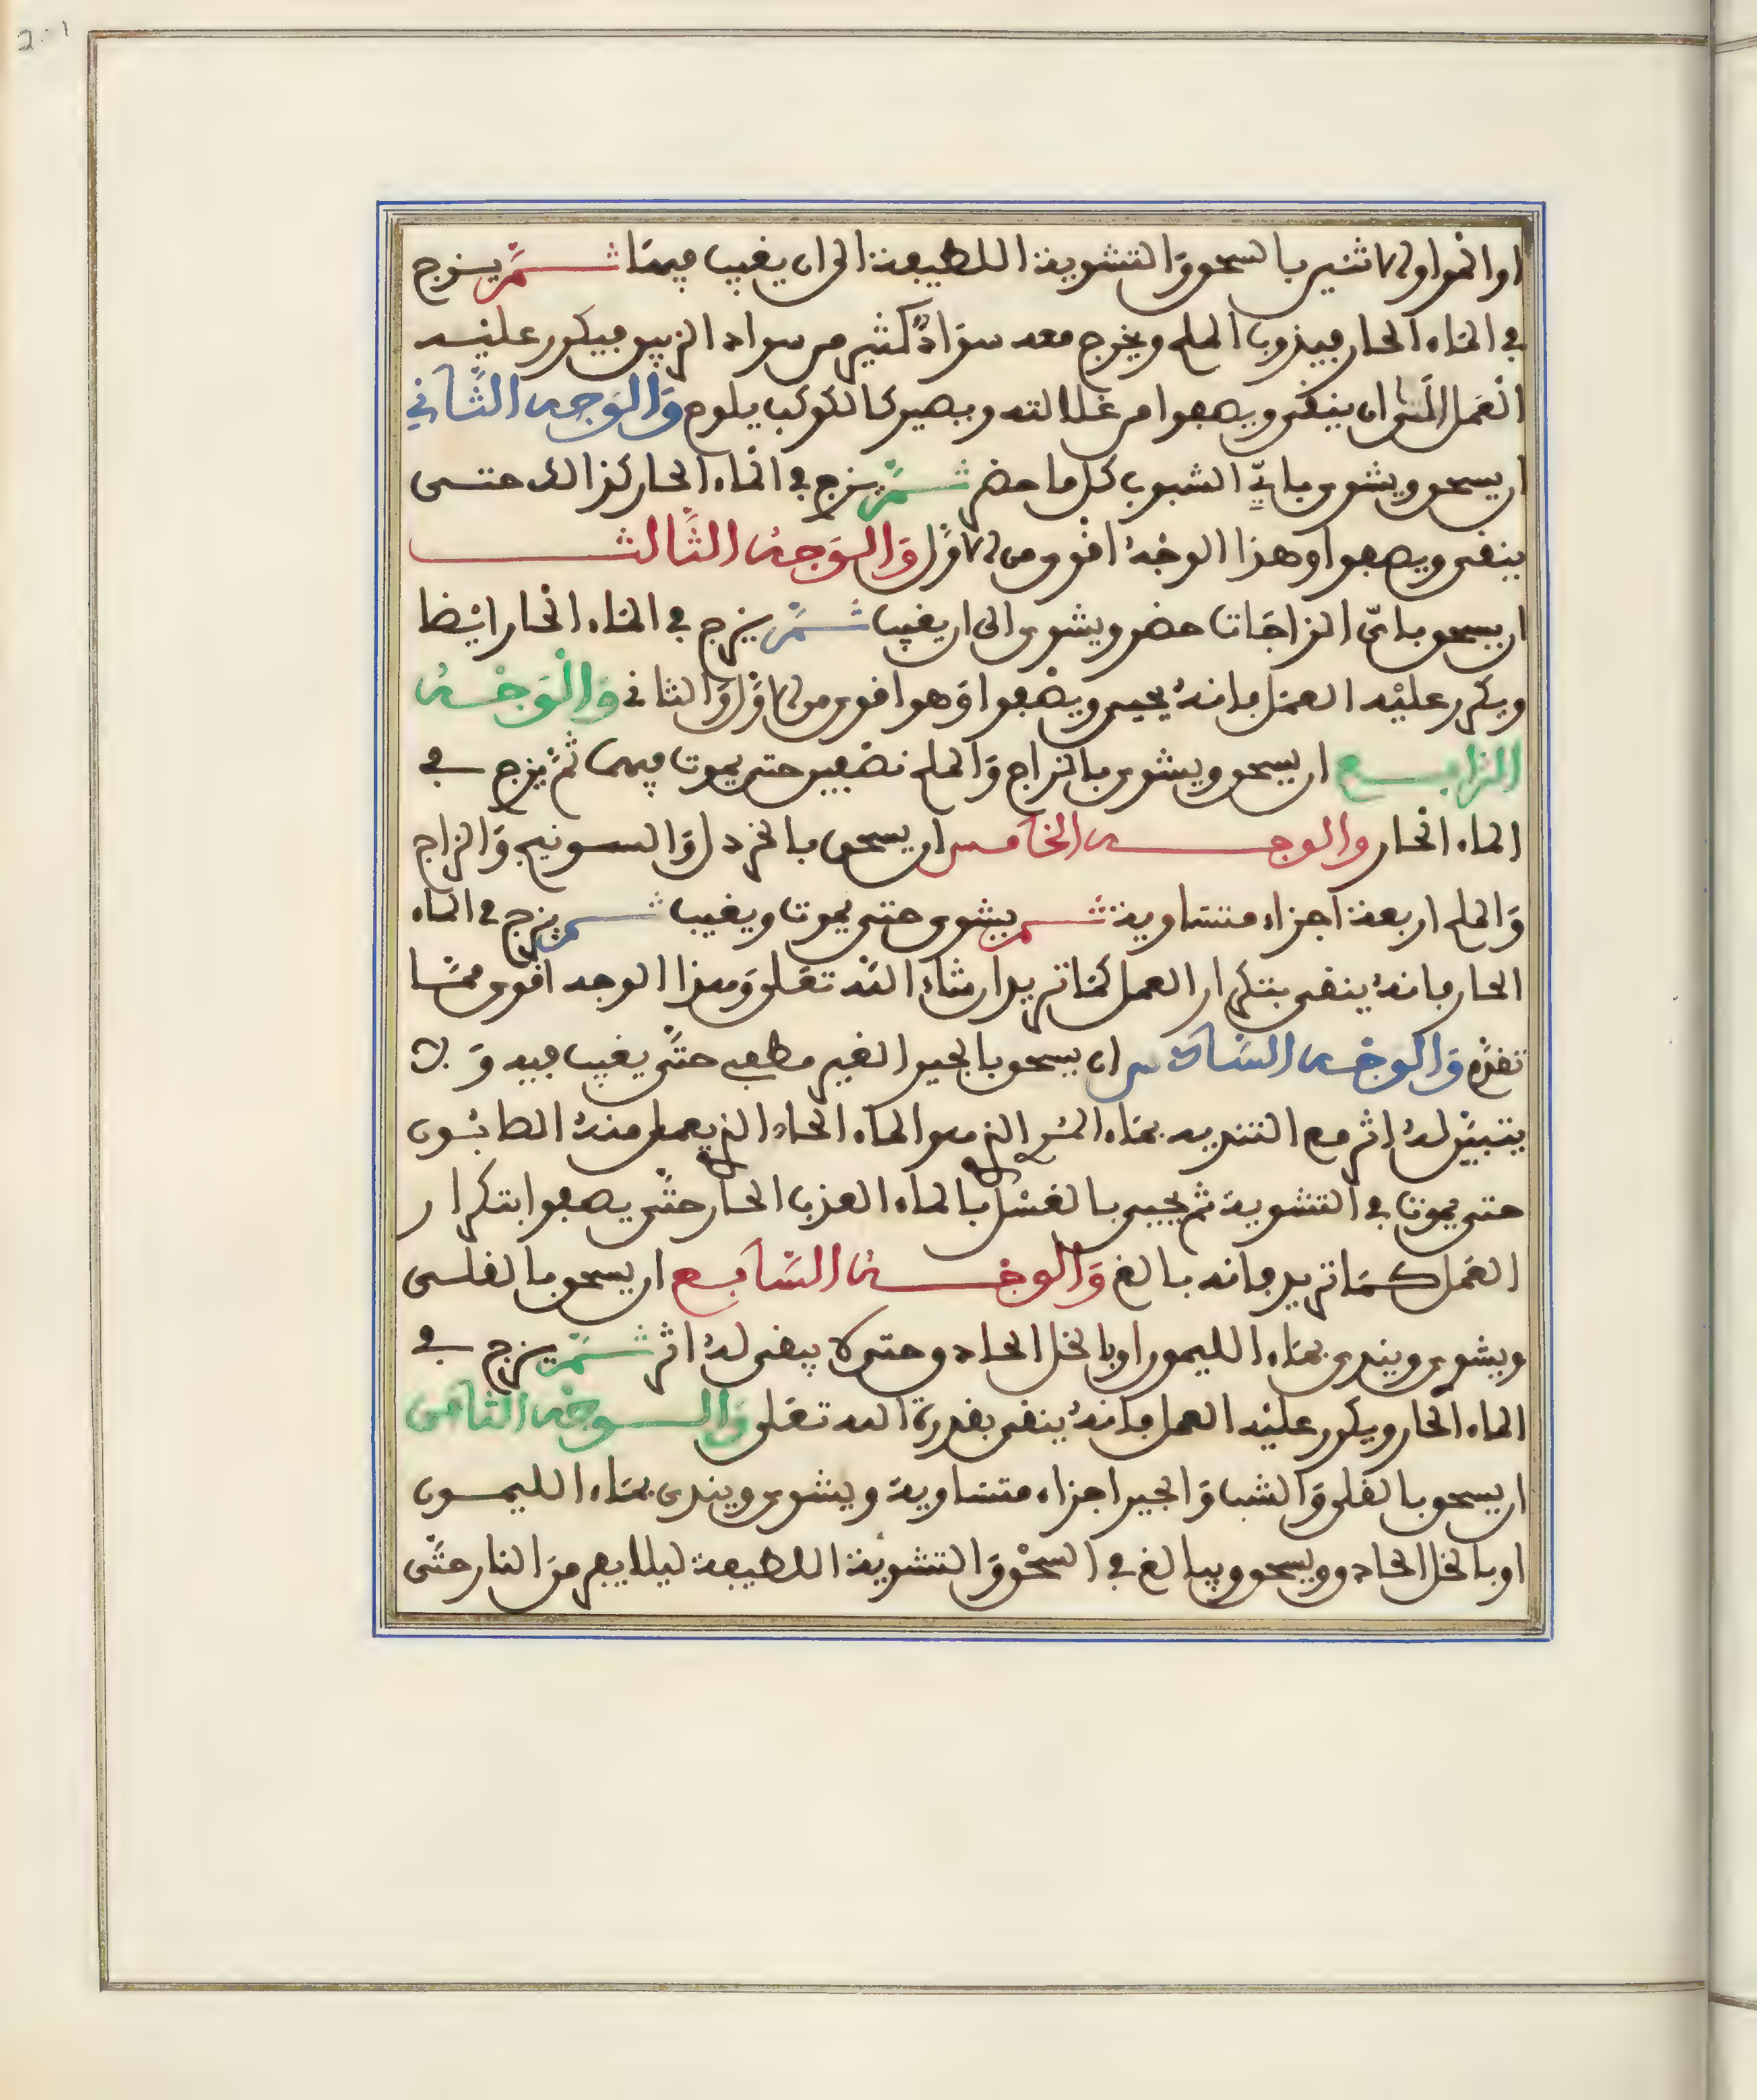 او المواولاثنين بالسحق والتشوية اللطيفة الى ان يغيب فيهما ثم يزج
في الماء الحار فيذوب الملح ويخرج معه سوادٌ كثير من سواد الزيبق فيكرر عليه
العمل الى ان ينقى ويصفوا من غللاته ويصير كالكوكب يلوح وَالوَجه الثَّاني
ان يسحق ويشوى باي الشبوب كل ما حضر ثم يزج في الماء الحار كذالك حتى
ينقى ويصفوا وهذا الوجهُ اقوى من الاوّل وَالوَجهُ الثَّالث
ان يسحق باىّ الزاجَات حضر ويشوى الى ان يغيب ثمّ يزج في الماء الحار ايْضا
ويكرر عليْه العمَل فانهُ يحيى ويصْفوا وَهوا اقوى من الاوَّل وَالثاني وَالْوَجْهُ
الرَّابع ان يسحق ويشوى بالزاج وَالملح نصفين حتى يموت فيهما ثمّ يزج في
الماء الحار والوجه الخامس ان يسحق بالخردل وَالسونيج وَالزاج
وَالملح اربعة اجزاء متسَاوية ثم يشوى حتى يموت ويغيب ثم يزج في الماء
الحار فانهُ ينقى بتكرار العمل كمَا تريد ان شاء اللّه تعَلى وَهذا الوجه اقوى ممَّا
تقدّم وَالوجْه السَّادس ان يسحق بالجير الغير مطفي حتَّى يغيب فيه وَلا
يتبيّن لهُ اثر مع التندية بمَاء الذي هو الماء الحاد الذي يعمل منهُ الصَّابُون
حتى يموت في التشوية ثم يحيى بالغسْل بالماء العذب الحار حتَّى يصفوا بتكرار
العَمل كمَا تريد فانه بالغ وَالوجْهُ السَّابع ان يسحق بالقلى
ويشوى ويندى بمَاء الليمون او بالخل الحاد وحتى لا يبقى لهُ اثر ثمّ يزج في
الماء الحار ويكرر عليْه العمل فانهُ ينقى بقدرة الله تعَلى وَالوجْه الثامن
ان يسحق بالقلى وَالشب وَالجير اجزاء متسَاوية ويشوى ويندى بمَاء الليمون
او بالخل الحاد وويسحق ويبالغ في السحْق وَالتشوية اللطيفة ليلا يفر منَ النار حتَّى